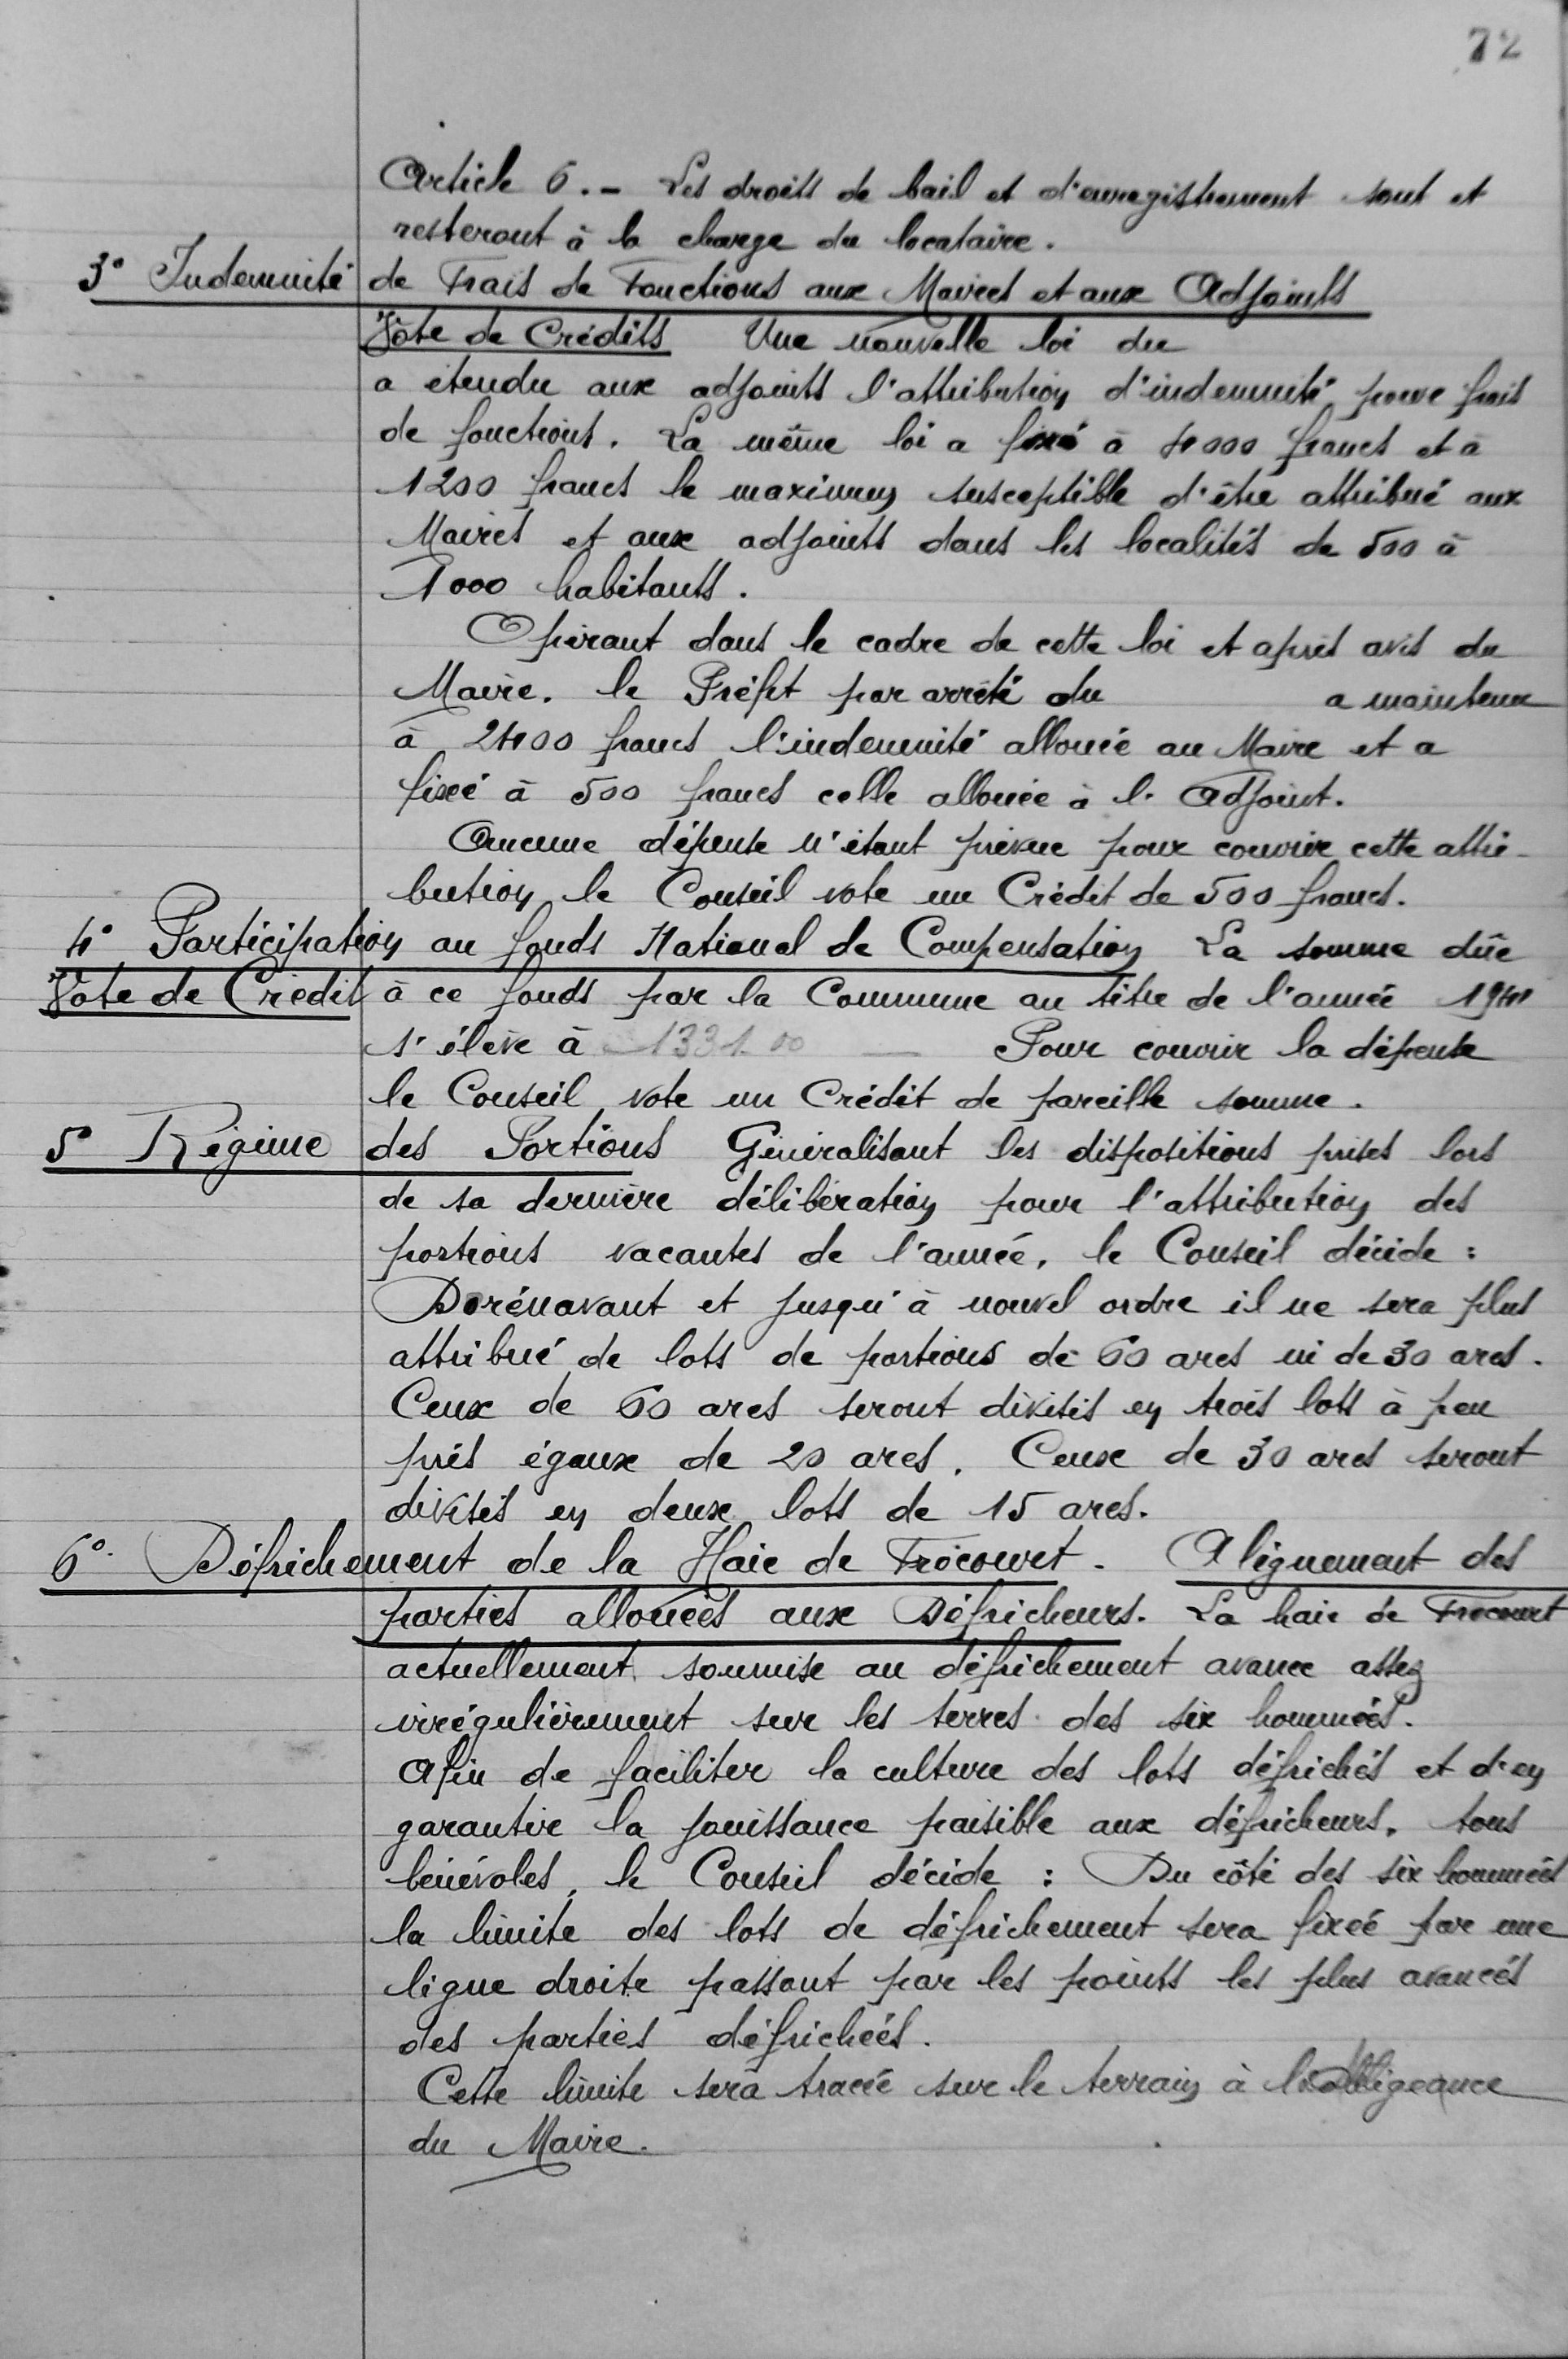 72
Article 6. - Les droits de bail et d'enregistrement sont et
resteront à la charge du locataire.
3° Indemnité de Frais de Fonctions aux Maires et aux Adjoints
Vote de Crédits Une nouvelle loi du
a étendu aux adjoints l'attribution d'indemnité pour frais
de fonctions. La même loi a fixé à 4000 francs et à
1200 francs le maximum susceptible d'être attribué aux
Maires et aux adjoints dans les localités de 500 à
1000 habitants.
Opérant dans le cadre de cette loi et après avis du
Maire, le Préfet par arrêté du a maintenu
à 2400 francs l'indemnité allouée au Maire et a
fixé à 500 francs celle allouée à l'Adjoint.
Aucune dépense n'étant prévue pour couvrir cette attri-
bution, le Conseil vote un Crédit de 500 francs.
4° Participation au fonds National de Compensation La somme dûe
Vote de Crédit à ce fonds par la Commune au titre de l'année 1941
s'élève à 1331.00 — Pour couvrir la dépense
le Conseil vote un Crédit de pareille somme.
5° Régime des Portions Généralisant les dispositions prises lors
de sa dernière délibération pour l'attribution des
portions vacantes de l'année, le Conseil décide :
Dorénavant et jusqu'à nouvel ordre il ne sera plus
attribué de lots de portions de 60 ares ni de 30 ares.
Ceux de 60 ares seront divisés en trois lots à peu
près égaux de 20 ares. Ceux de 30 ares seront
divisés en deux lots de 15 ares.
6° Défrichement de la Haie de Frocourt. Alignement des
parties allouées aux Défricheurs. La haie de Frocourt
actuellement soumise au défrichement avance assez
irrégulièrement sur les terres des six hommées.
Afin de faciliter la culture des lots défrichés et d'en
garantir la jouissance paisible aux défricheurs, tous
bénévoles, le Conseil décide : Du côté des six hommées
la limite des lots de défrichement sera fixée par une
ligne droite passant par les points les plus avancés
des parties défrichées.
Cette limite sera tracée sur le terrain à la
du Maire.